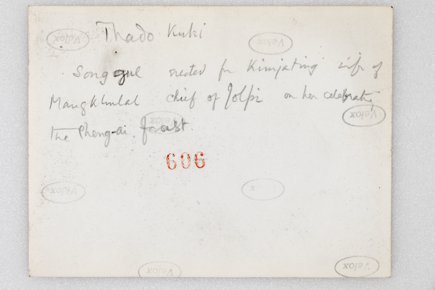 Thado Kuki
Song gul erected for Kimjating wife of
Mangkhulal chief of Jolpi on her celebrating
the Pheng-ai feast.
606
Velox
Velox
Velox
Velox
Velox
Velox
Velox